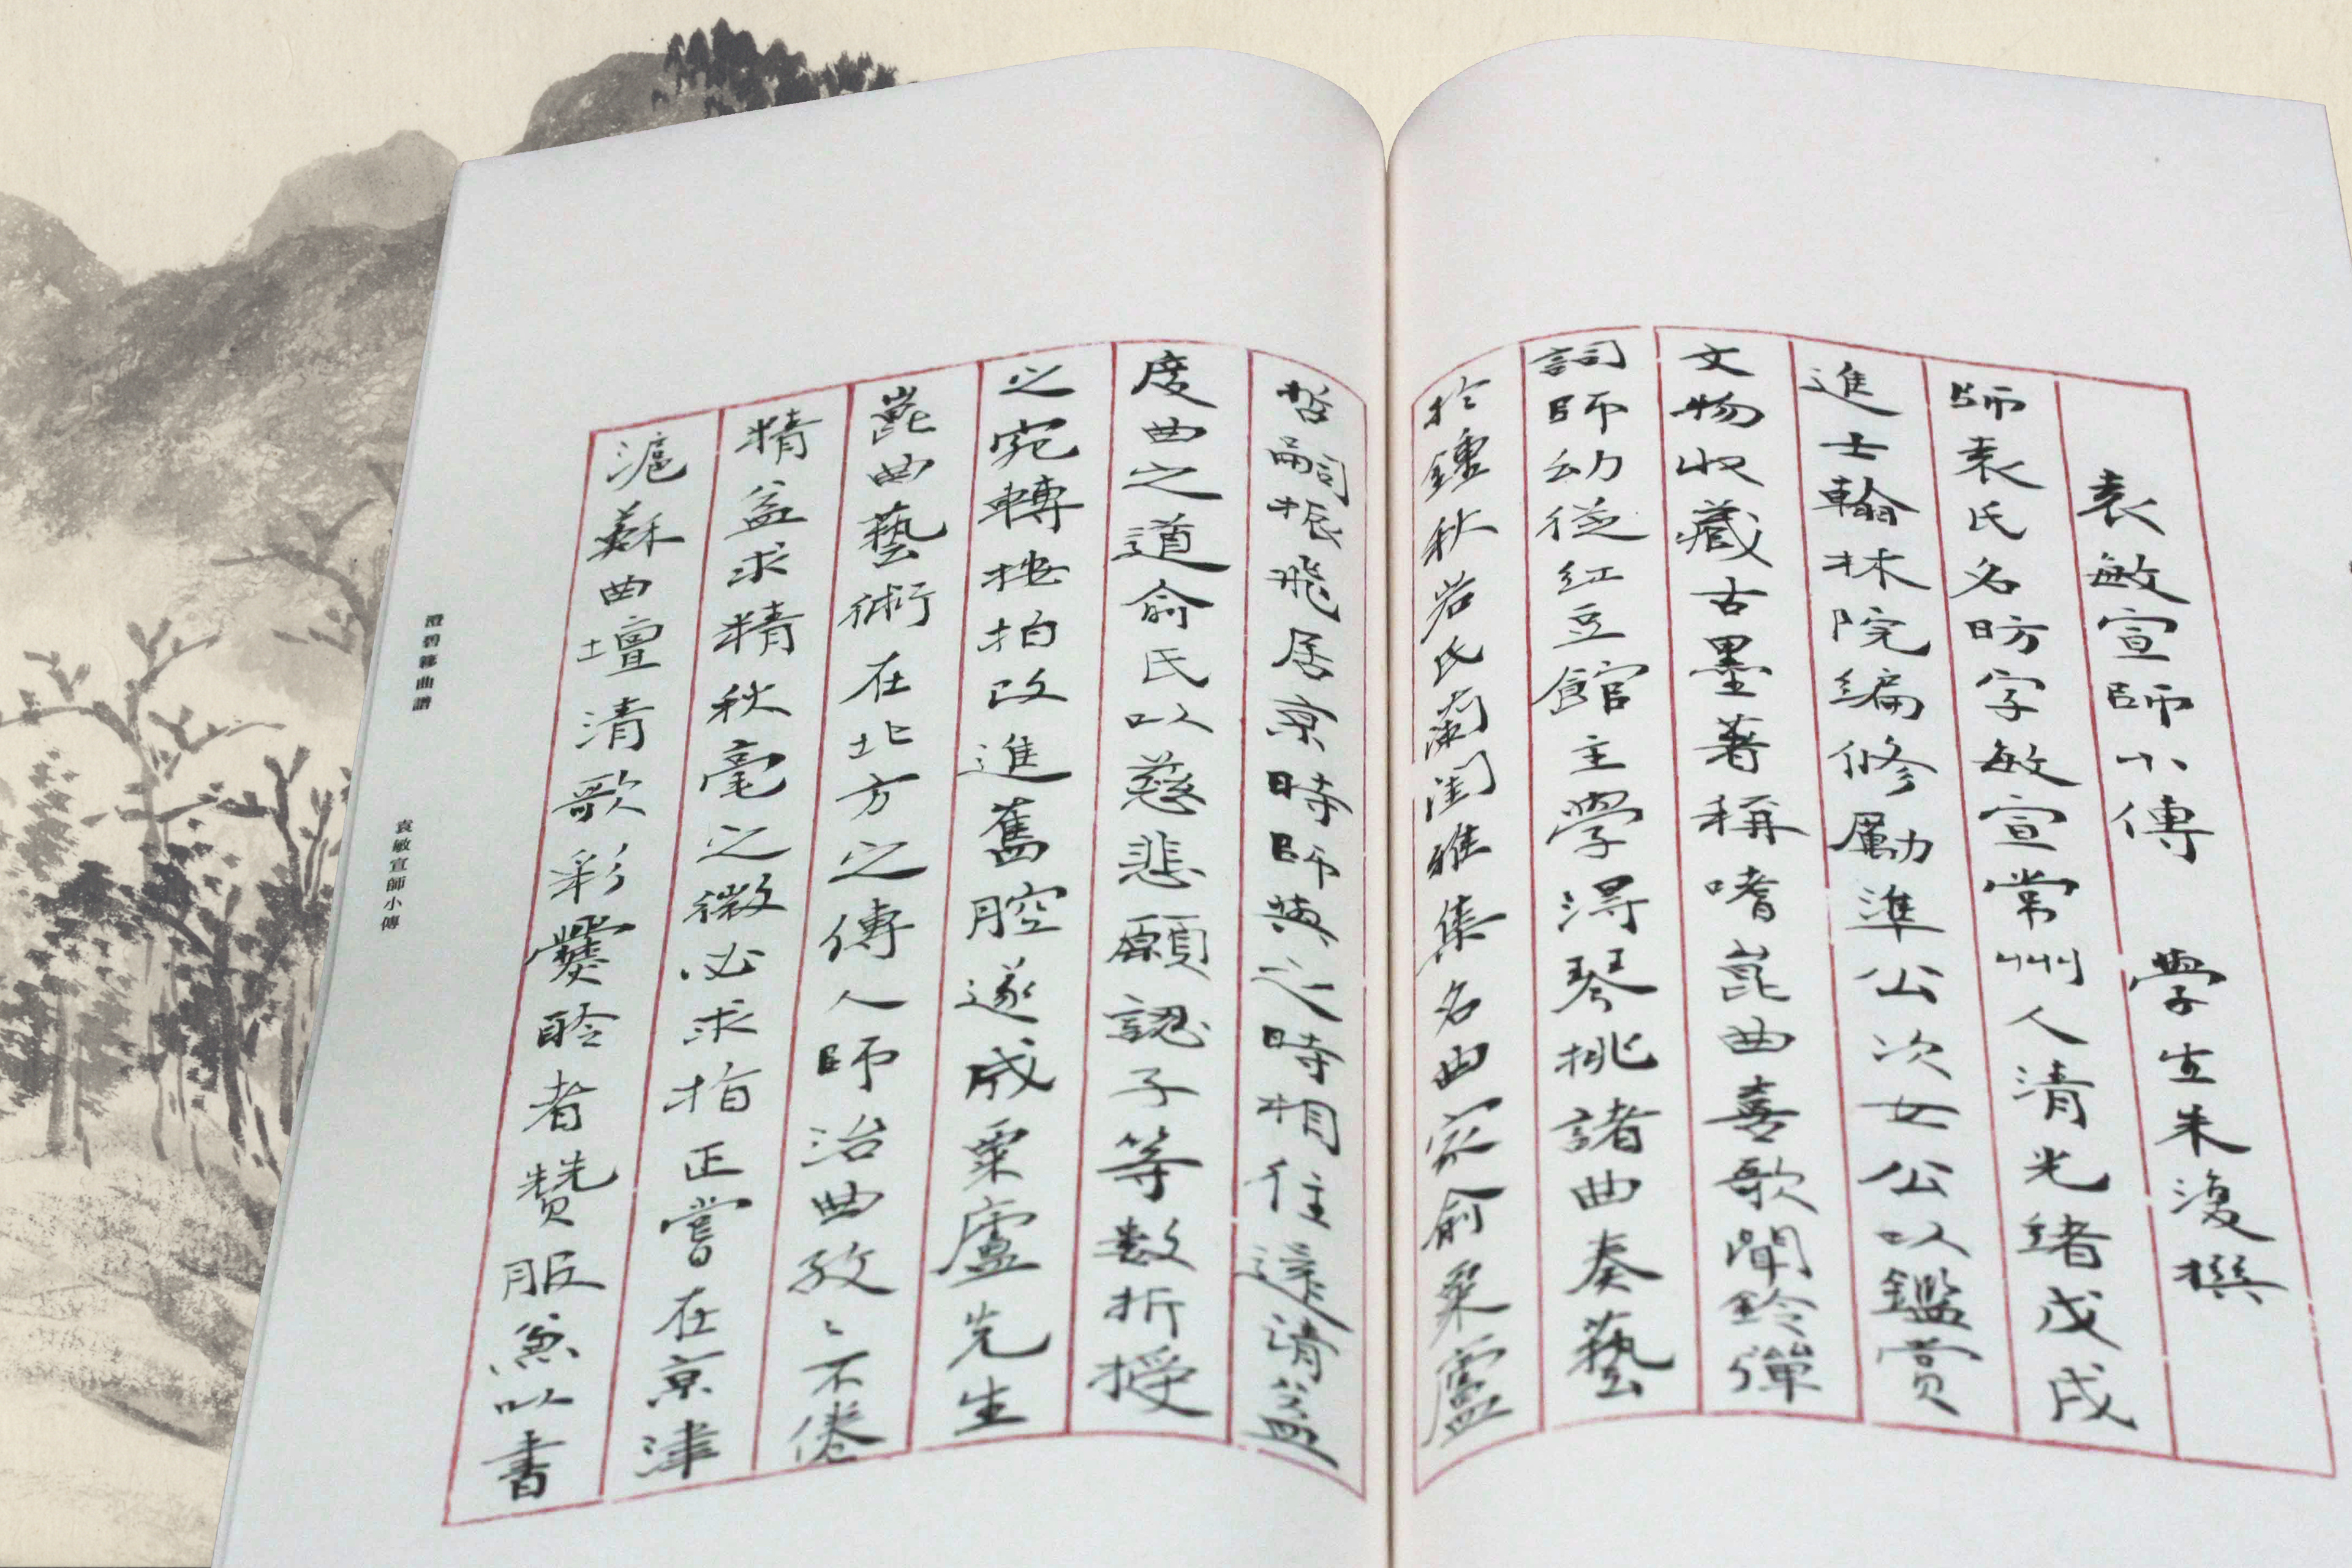 袁敏宣師小傳　學生朱復撰
師袁氏名昉字敏宣常州人清光緒戊戌
進士翰林院編修勵準公次女公以鑑賞
文物收藏古墨著稱嗜崑曲喜歌閒鈴彈
詞師幼從紅豆館主學得琴挑諸曲奏藝
於鍾秋岩氏蘭閨雅集名曲家俞粟廬
哲嗣振飛居京時師與之時相往還請益
度曲之道俞氏以慈悲願認子等数折授
之宛轉按拍改進舊腔遂成粟廬先生
崑曲藝術在北方之傳人師治曲孜〻不倦
精益求精秋毫之微必求指正嘗在京津
滬蘇曲壇清歌彩爨聆者贊服兼以書
澄碧簃曲譜
袁敏宣師小傳